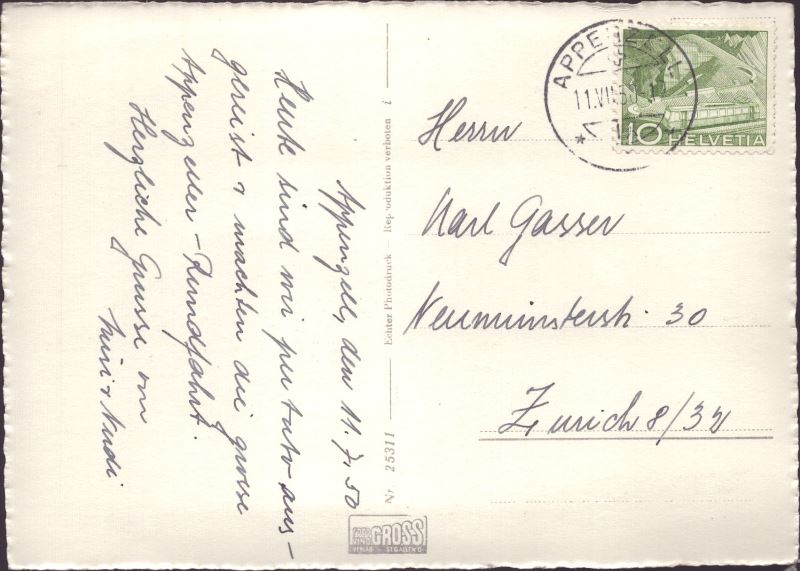 Appenzell, den 11.7.50
Heute sind wir per Auto aus-
gereist & machten die grosse
Appenzeller-Rundfahrt.
Herzliche Grüsse von
&
Nr. 25311
Echter Photodruck — Reproduktion verboten
GROSS
VERLAG - ST GALLEN
APPENZELL
11.VII.5
10 HELVETIA
Herrn
Karl Gasser
Neumünsterstr. 30
Zürich 8/32